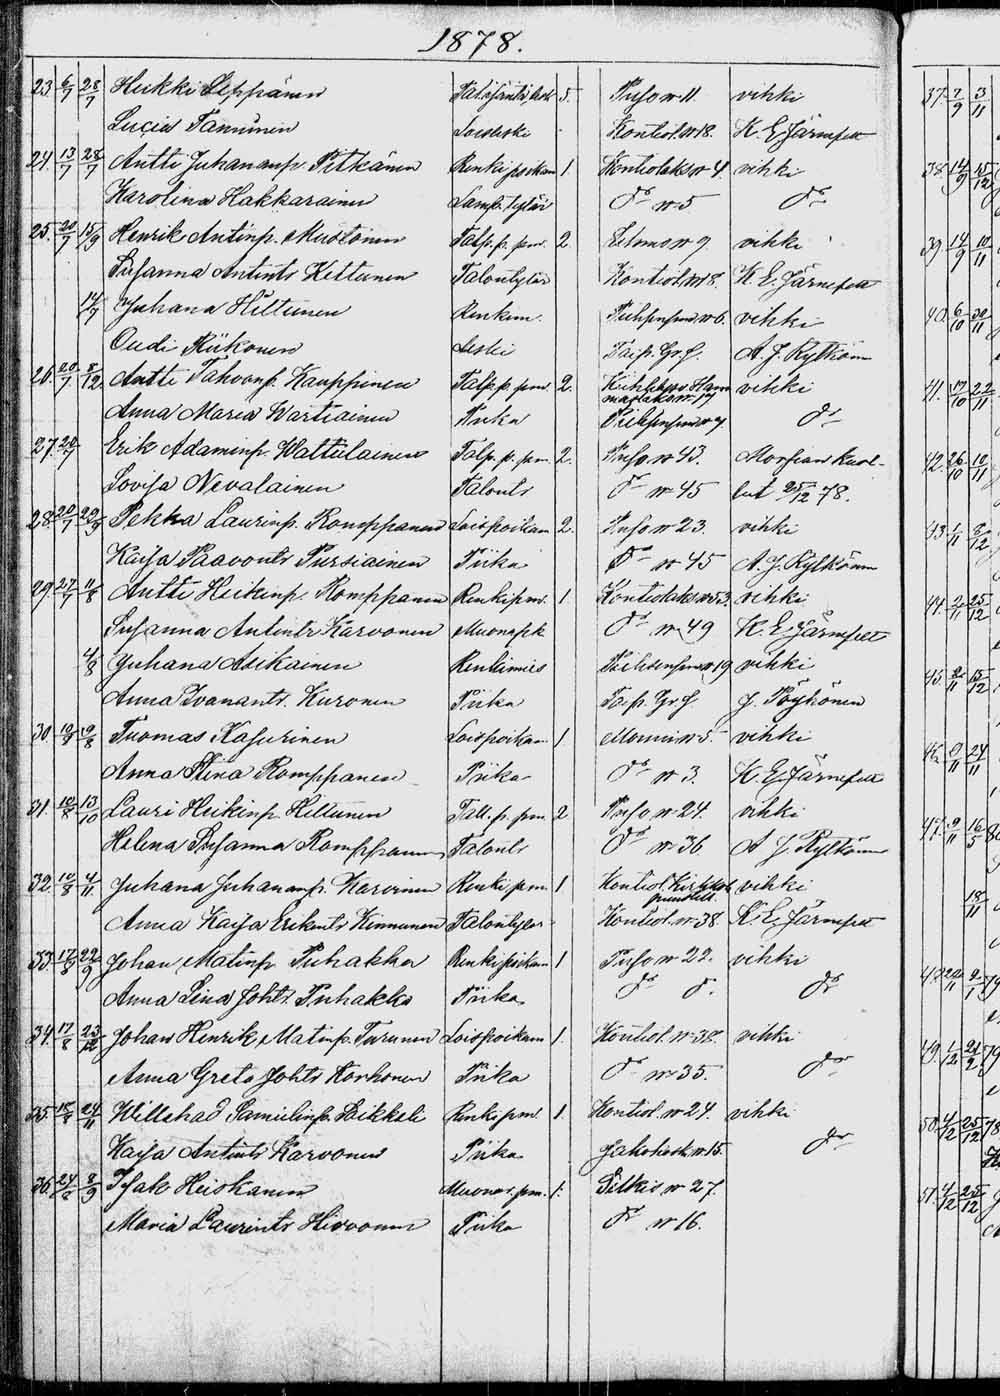 1878.
23. 6/7 28/7 Heikki Seppänen 5. Puso n 11. vihki
Lucia Tanninen Loisleski Kontiol. n 18. K. E. Järnefelt
24. 13/7 28/7 Antti Juhananp. Pitkänen Renki poikam. 1 Kontiolaks n 4. vihki
Karolina Hakkarainen Lamp. tytär do n 5 do
25. 20/7 15/9 Henrik Antinp. Mustonen Talp. p. pm. 2. n 9. vihki
Susanna Antintr Kettunen Talontytär Kontiol. n 18. K. E. Järnefelt
14/7 Juhana Hiltunen Renkim. n 6. vihki
Oudi Riikonen Leski Taip. Gr. f. A. J. Rytkönen
26. 20/7 8/12 Antti Tahvonp. Kauppinen Talp. p. pm. 2. n 17 vihki
Anna Maria Wartiainen Piika n 7. do
27. 20/7 Erik Adaminp. Wattulainen Talp. p. pm. 2. Puso n 43. Morsian kuol-
Lovisa Nevalainen Talontr do n 45 lut 25/12 78.
28. 20/7 Pekka Laurinp. Romppanen Loispoikam 2. Puso n 23. vihki
Kaisa Paavontr Pursiainen Piika do n 45 A. J. Rytkönen
29. 27/7 11/8 Antti Heikinp. Romppanen Renki pm. 1. Kontiolaks n 53. vihki
Susanna Antintr Karvonen do n 49 K. E. Järnefelt
4/8 Juhana Asikainen Renkimies n 19 vihki
Anna Ivanantr. Kuronen Piika Taip. Gr. f. J. Pöyhönen
30. 10/8 Tuomas Kasurinen Loispoikam. 1. n 5. vihki
Anna Stina Romppanen Piika do n 3. K. E. Järnefelt
31. 10/8 13/10 Lauri Heikinp. Hiltunen Tall. p. pm. 2 Puso n 24. vihki
Helena Susanna Romppanen Talontr do n 36 A J. Rytkönen
32. 10/8 4/11 Juhana Juhananp. Karvinen Renki pm. 1 Kontiol. vihki
Anna Kaisa Erikintr Kinnunen Talontytär Kontiol. n 38. K. E. Järnefelt
33. 17/8 22/9 Johan Matinp. Puhakka Renkipoikam 1 Puso n 22. vihki
Anna Liina Johtr Puhakka Piika do do. do
34. 17/8 Johan Henrik Matinp. Turunen Loispoikam 1. Kontiol. n 38. vihki
Anna Greta Johtr Korhonen Piika do n 35. do
35. 24/11 Willehad Samulinp. Rikkola Renki pm. 1. Kontiol. n 24. vihki
Kaisa Antintr Karvonen Piika n 15. do
36. 24/8 8/9 Isak Heiskanen Muonar. pm. 1. Selkie n 27.
Maria Laurintr Hirvonen Piika do n 16.
37. 7/9 3/11
38. 14/9
39. 14/9 10/11
40. 6/10 30/11
41.
42. 26/10 10/11
43. 1/11 8/12
44. 2/11 25/12
45.
46.
47.
48.
49. 1/12
50. 4/12 25/12 78
51. 4/12 25/12